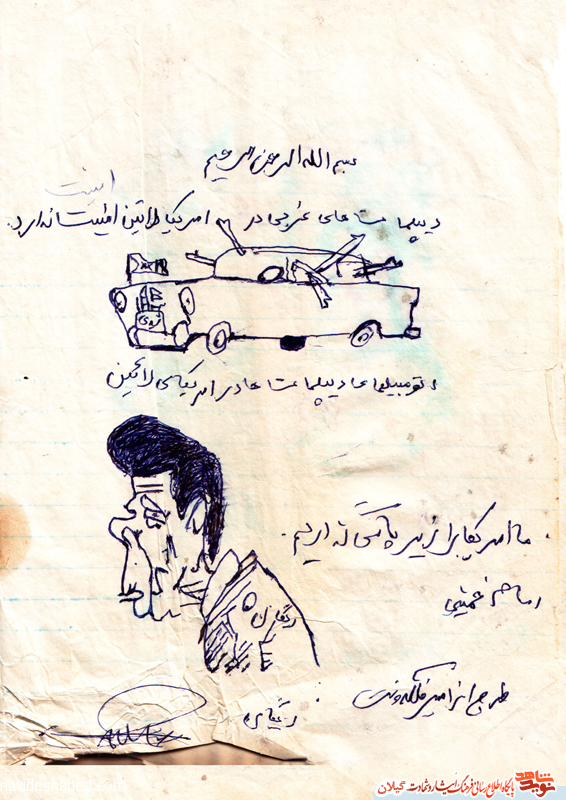 بسم الله الرحمن الرحیم
امنیت
دیپلمات های غربی در امریکا لاتین امنیت ندارد.
اتومبیلها دیپلمات ها در امریکای لاتین
ما امریکا را زیر پا می گذاریم.
امام خمینی
ریگان
طرح از امیر
ریگان
نوید شاهد
پایگاه اطلاع رسانی فرهنگ ایثار و شهادت گیلان
navideshahed.com